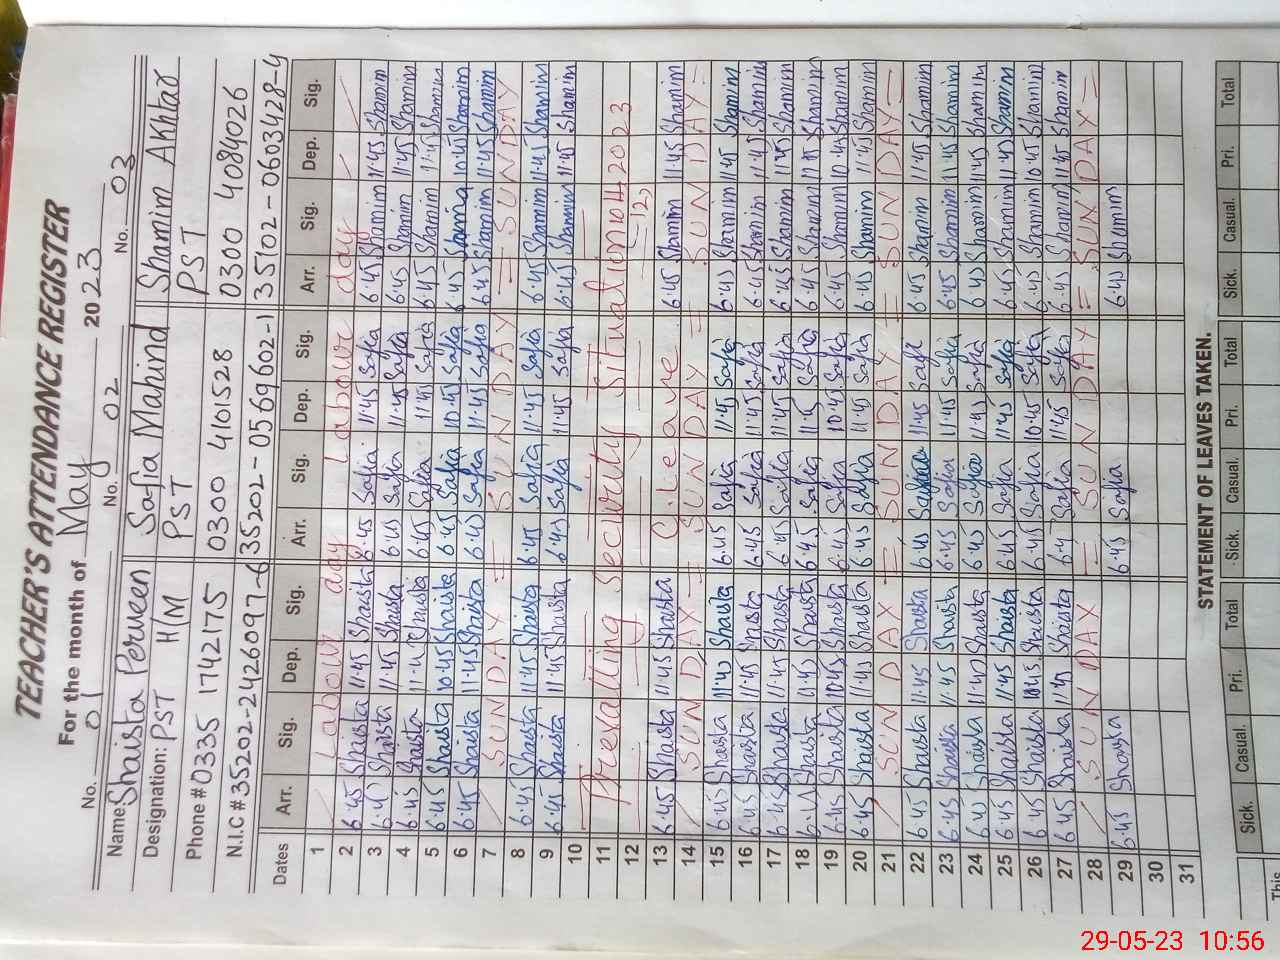 TEACHER'S ATTENDANCE REGISTER
For the month of May 2023
No. 01 No. 02 No. 03
Name: Shaista Perveen Safia Mahind Shamim AKhtar
Designation: PST H/M PST PST
Phone # 0335 1742175 0300 4101528 0300 4084026
N.I.C # 35202-2426097-6 35202-0569602-1 35102-0603428-4
Dates Arr. Sig. Dep. Sig. Arr. Sig. Dep. Sig. Arr. Sig. Dep. Sig.
1 Labour day Labour day
2 6.45 Shaista 11.45 Shaista 6.45 Safia 11.45 Safia 6.45 Shamim 11.45 Shamim
3 6.45 Shaista 11.45 Shaista 6.45 Safia 11.45 Safia 6.45 Shamim 11.45 Shamim
4 6.45 Shaista 11.45 Shaista 6.45 Safia 11.45 Safia 6.45 Shamim 11.45 Shamim
5 6.45 Shaista 10.45 Shaista 6.45 Safia 10.45 Safia 6.45 Shamim 10.45 Shamim
6 6.45 Shaista 11.45 Shaista 6.45 Safia 11.45 Safia 6.45 Shamim 11.45 Shamim
7 SUNDAY = SUNDAY = SUNDAY
8 6.45 Shaista 11.45 Shaista 6.45 Safia 11.45 Safia 6.45 Shamim 11.45 Shamim
9 6.45 Shaista 11.45 Shaista 6.45 Safia 11.45 Safia 6.45 Shamim 11.45 Shamim
10
11 Security Situation 2023
12
13 6.45 Shaista 11.45 Shaista leave 6.45 Shamim 11.45 Shamim
14 SUNDAY = SUNDAY = SUNDAY =
15 6.45 Shaista 11.45 Shaista 6.45 Safia 11.45 Safia 6.45 Shamim 11.45 Shamim
16 6.45 Shaista 11.45 Shaista 6.45 Safia 11.45 Safia 6.45 Shamim 11.45 Shamim
17 6.45 Shaista 11.45 Shaista 6.45 Safia 11.45 Safia 6.45 Shamim 11.45 Shamim
18 6.45 Shaista 11.45 Shaista 6.45 Safia 11.45 Safia 6.45 Shamim 11.45 Shamim
19 6.45 Shaista 10.45 Shaista 6.45 Safia 10.45 Safia 6.45 Shamim 10.45 Shamim
20 6.45 Shaista 11.45 Shaista 6.45 Safia 11.45 Safia 6.45 Shamim 11.45 Shamim
21 SUNDAY = SUNDAY = SUNDAY =
22 6.45 Shaista 11.45 Shaista 6.45 11.45 Safi 6.45 Shamim 11.45 Shamim
23 6.45 Shaista 11.45 Shaista 6.45 Safia 11.45 Safia 6.45 Shamim 11.45 Shamim
24 6.45 Shaista 11.45 Shaista 6.45 Safia 11.45 Safia 6.45 Shamim 11.45 Shamim
25 6.45 Shaista 11.45 Shaista 6.45 Safia 11.45 Safia 6.45 Shamim 11.45 Shamim
26 6.45 Shaista 10.45 Shaista 6.45 Safia 10.45 Safia 6.45 Shamim 10.45 Shamim
27 6.45 Shaista 11.45 Shaista 6.4 Safia 11.45 Safia 6.45 Shamim 11.45 Shamim
28 SUNDAY = SUNDAY = SUNDAY =
29 6.45 Shaista 6.45 Safia 6.45 Shamim
30
31
STATEMENT OF LEAVES TAKEN.
Sick. Casual. Pri. Total Sick. Casual. Pri. Total Sick. Casual. Pri. Total
This
29-05-23 10:56